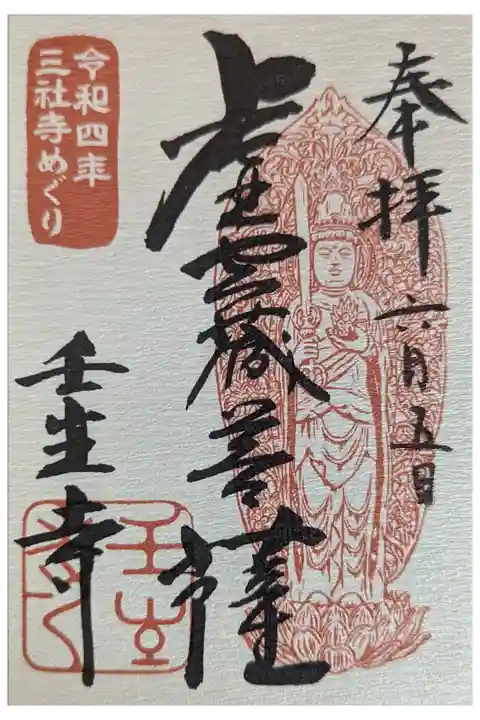 奉拝 六月五日
虚空蔵菩薩
令和四年
三社寺めぐり
壬生寺